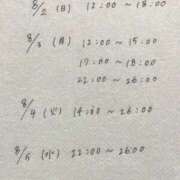 8/2 (日) 12:00 ~ 18:00
8/3 (月) 12:00 ~ 15:00
17:00 ~ 18:00
22:00 ~ 26:00
8/4 (火) 14:00 ~ 26:00
8/5 (水) 22:00 ~ 26:00